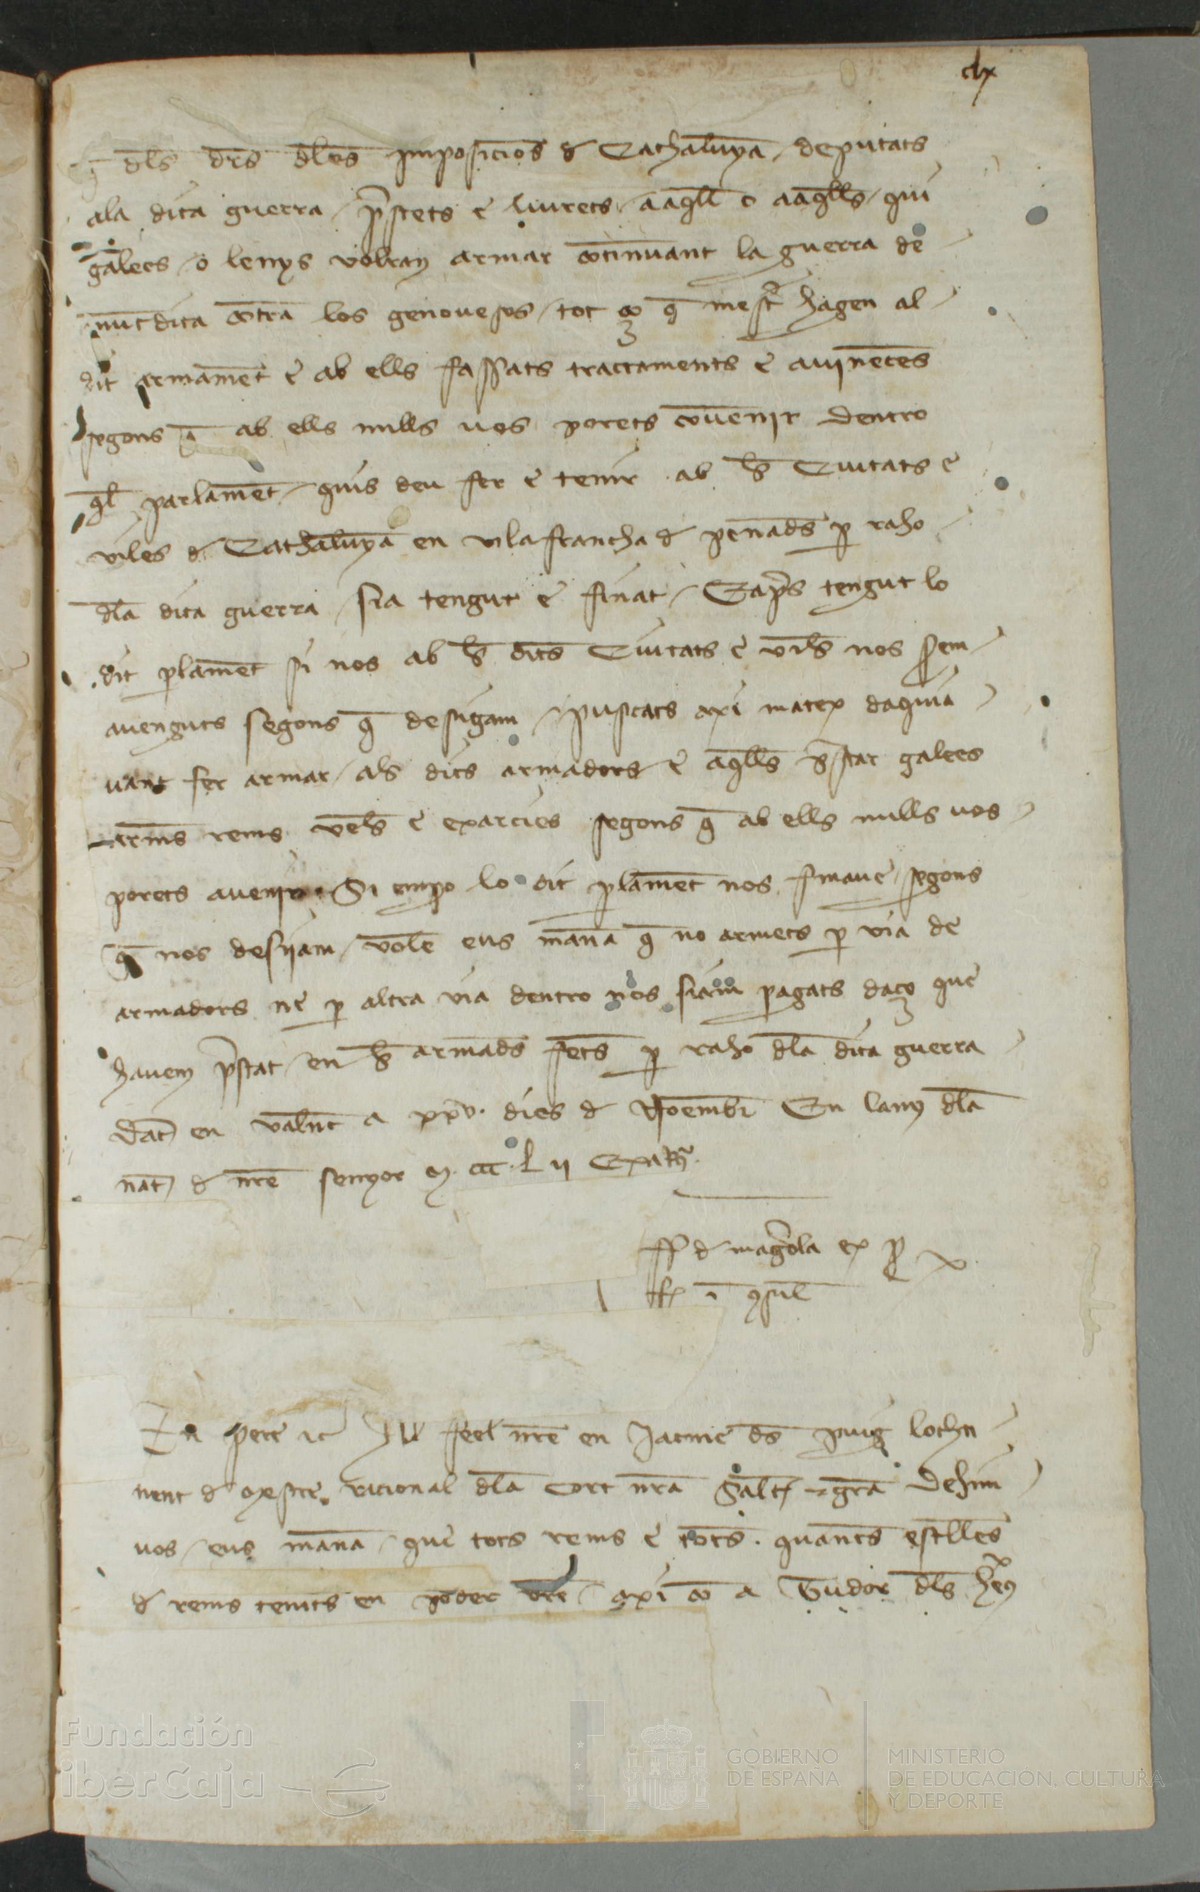 clx
q̄ dl̄s drs̄ dl̄es imposicions d Cathalunya deputats
ala dita guerra prestets e liurets aaq̄ll o aaq̄lls qui
galees o lenys volran armar continuant la guerra de
nuntdita contra los genoueses tot ço q̄ mest hagen al
dit armament e ab ells fassats tractaments e auinences
segons q̄ ab ells mills vos porets conuenir dentro
q̄l parlament quis deu fer e tenir ab ls Ciutats e
viles d Cathalunya en vilafrancha d penades p raho
dla dita guerra sia tengut e finat E apres tengut lo
dit plament si nos ab ls dits Ciutats e viles nos serem
auenguts segons q̄ desijam puscats axi matex daquia
uant fer armar als dits armadors e aq̄lls prestar galees
armes rems veles e exarcies segons q̄ ab ells mills vos
porets auenir Si empo lo dit plament nos finaue segons
q̄ nos desijam volem eus manam q̄ no armets p via de
armadors ne p altra via dentro nos siam pagats daço que
hauem prestat en ls armades fetes p raho dla dita guerra
Dat en valnc a xxv dies d Noembr En lany dla
nat d nre senyor M ccc L ii Exa
ff d magrola ex p
in consil
En pere ac al feel nre en Jacme des puig lochti
nent d mestre racional dla Cort nra Salt gra Dehim
vos eus manam que tots rems e tots quants estelles
d rems tenits en poder vre axi com a Tudor dls hereus
Fundación
iberCaja
GOBIERNO
DE ESPAÑA
MINISTERIO
DE EDUCACIÓN, CULTURA
Y DEPORTE